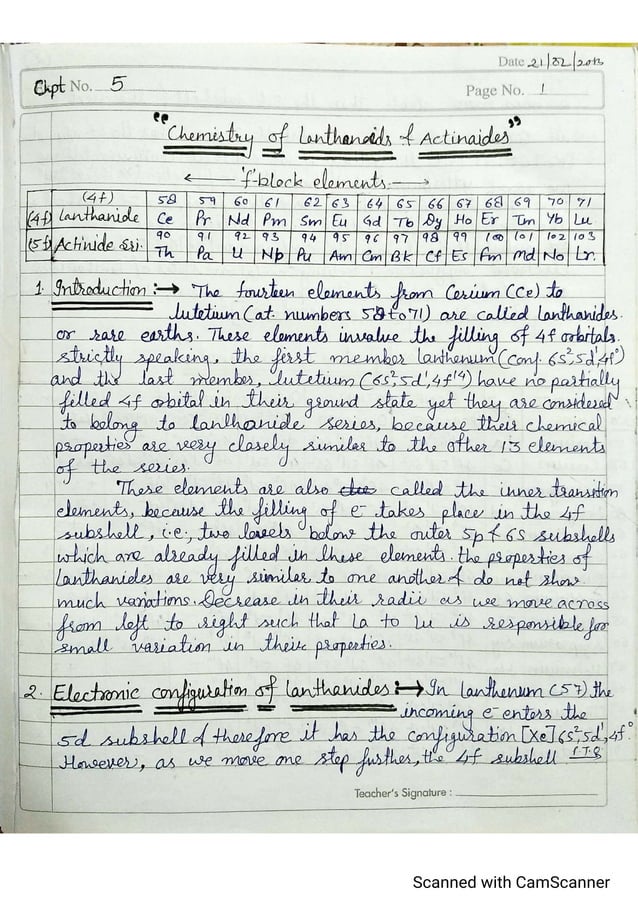 Date 21/02/2013
Chpt No. 5
Page No. 1
"Chemistry of Lanthanoids & Actinaides"
← 'f'-block elements. →
(4f) 58 59 60 61 62 63 64 65 66 67 68 69 70 71
(4f) Lanthanide Ce Pr Nd Pm Sm Eu Gd Tb Dy Ho Er Tm Yb Lu
90 91 92 93 94 95 96 97 98 99 100 101 102 103
(5f) Actinide Sri. Th Pa U Np Pu Am Cm Bk Cf Es Fm Md No Lr.
1. Introduction :→ The fourteen elements from Cerium (Ce) to
lutetium (at. numbers 58 to 71) are called lanthanides.
or rare earths. These elements involve the filling of 4f orbitals.
strictly speaking, the first member lanthenum (conf. 6s²,5d¹,4f⁰)
and the last member, lutetium (6s²,5d¹,4f¹⁴) have no partially
filled 4f orbital in their ground state yet they are considered
to belong to lanthanide series, because their chemical
properties are very closely similar to the other 13 elements
of the series.
These elements are also called the inner transition
elements, because the filling of e⁻ takes place in the 4f
subshell, i.e., two levels below the outer 5p & 6s subshells
which are already filled in these elements. the properties of
Lanthanides are very similar to one another & do not show
much variations. Decrease in their radii as we move across
from left to right such that La to Lu is responsible for
small variation in their properties.
2. Electronic configuration of lanthanides :→ In lanthenum (57) the
incoming e⁻ enters the
5d subshell & therefore it has the configuration [Xe] 6s²,5d¹,4f⁰
However, as we move one step further, the 4f subshell P.T.O
Teacher's Signature :
Scanned with CamScanner